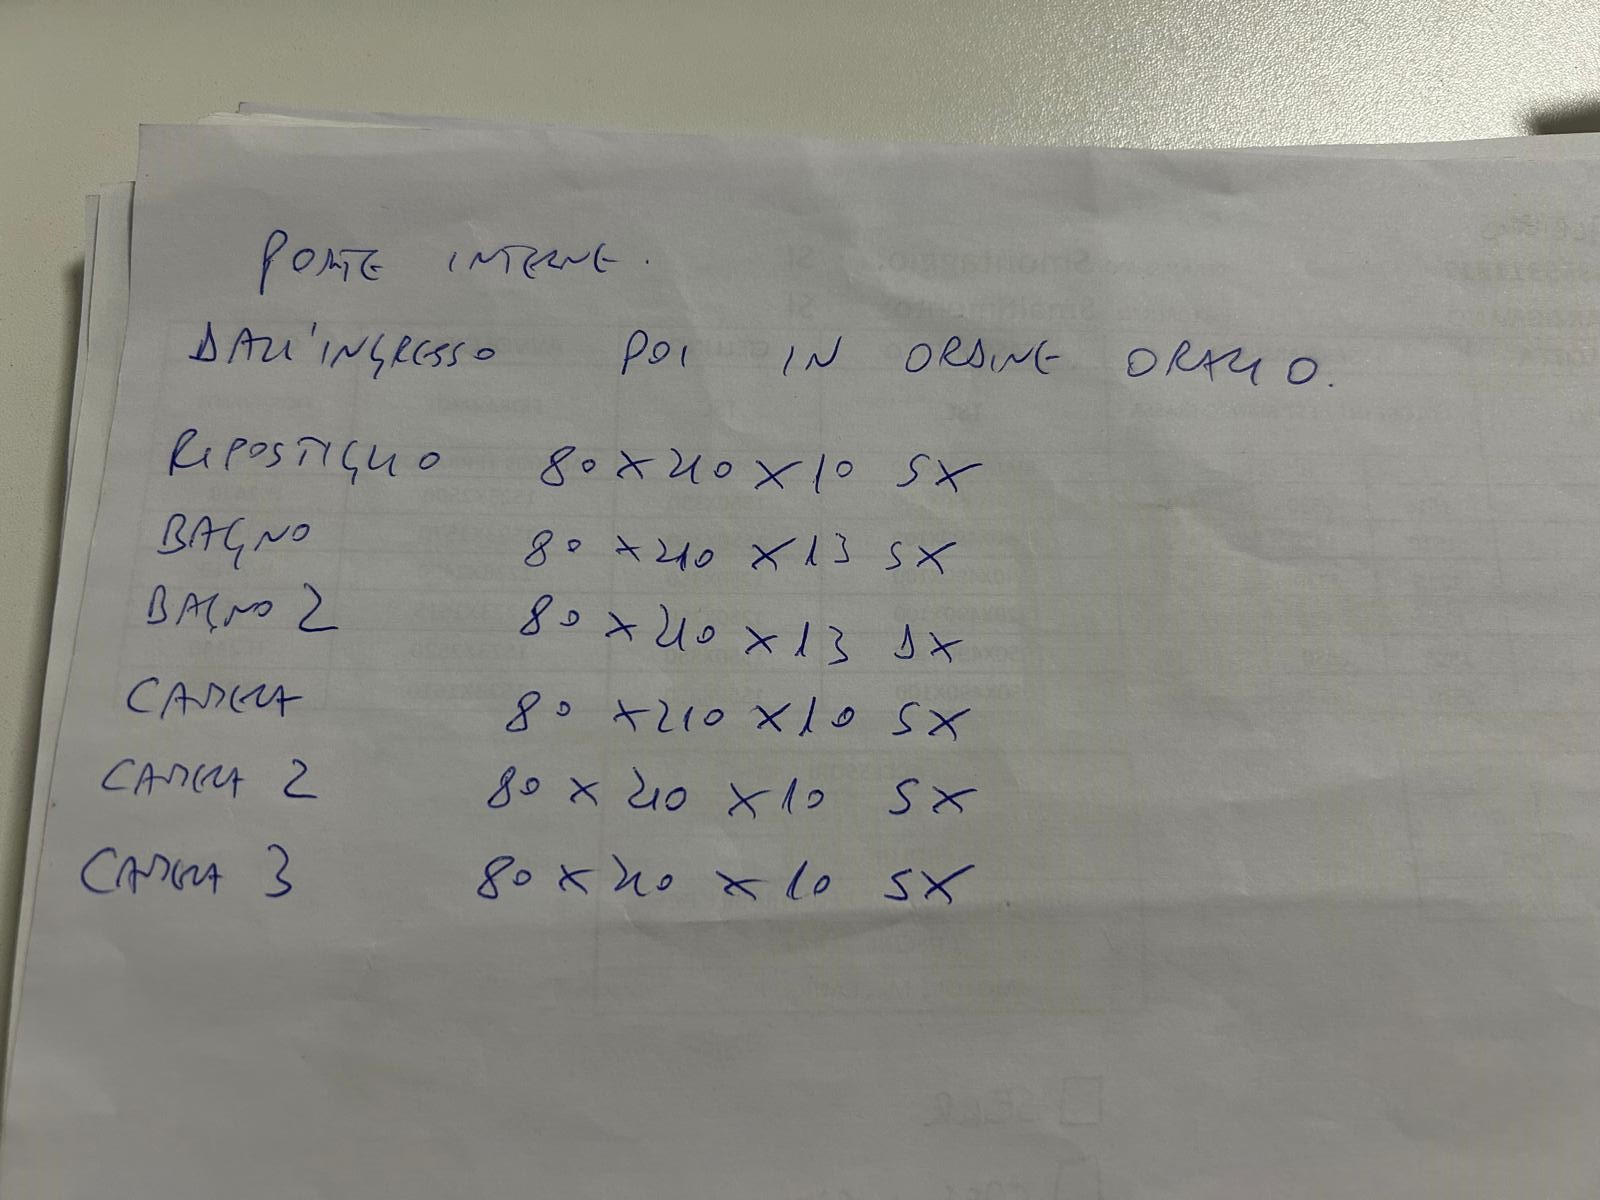 PORTE INTERNE.
DALL'INGRESSO POI IN ORDINE ORARIO.
RIPOSTIGLIO 80 X 210 X 10 SX
BAGNO 80 X 210 X 13 SX
BAGNO 2 80 X 210 X 13 DX
CAMERA 80 X 210 X 10 SX
CAMERA 2 80 X 210 X 10 SX
CAMERA 3 80 X 210 X 10 SX